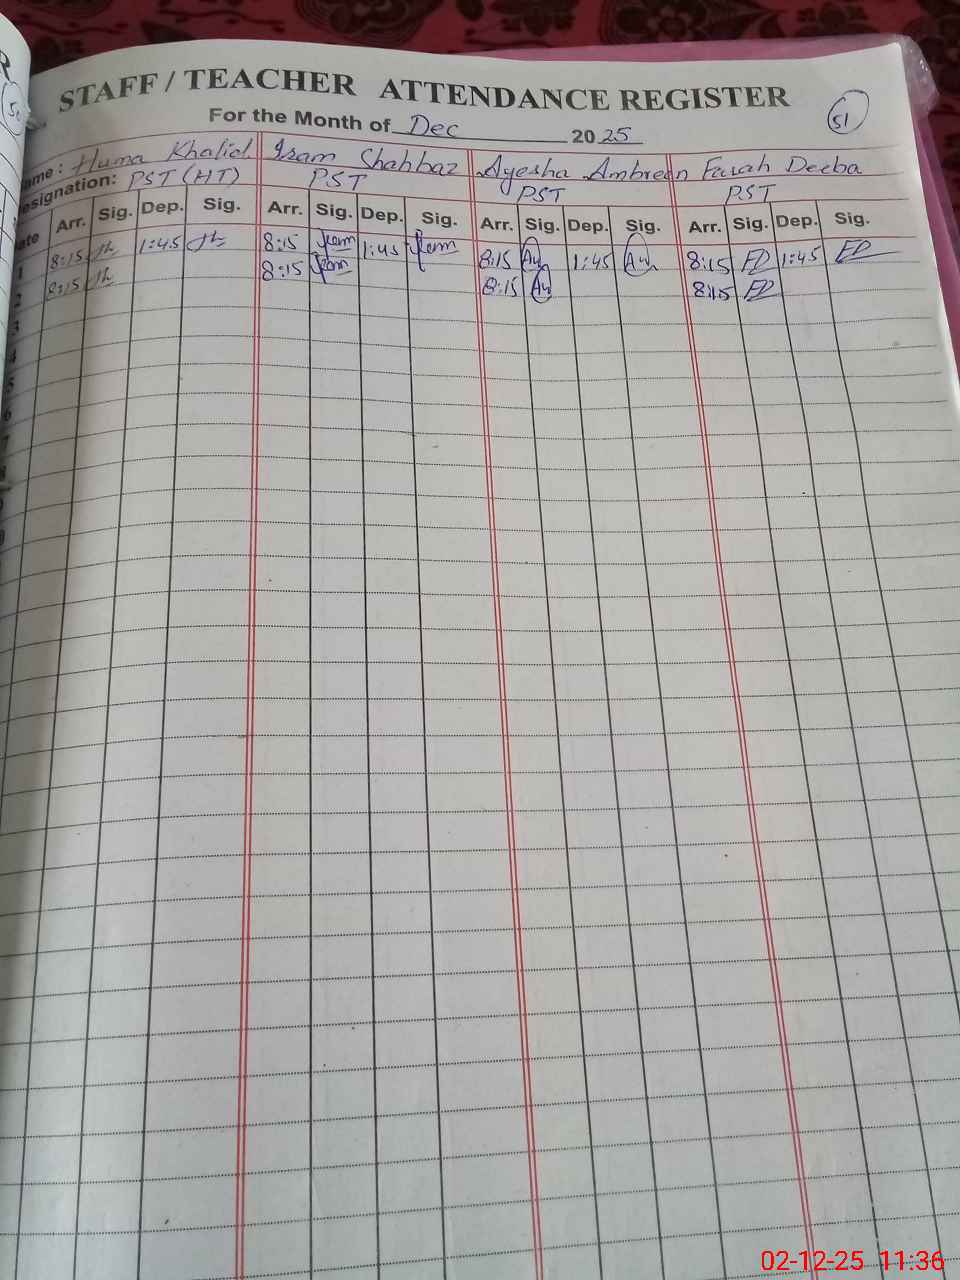 STAFF / TEACHER ATTENDANCE REGISTER
51
For the Month of Dec 2025
ame : Huma Khalid Iram Shahbaz Ayesha Ambreen Farah Deeba
esignation: PST (HT) PST PST PST
ate Arr. Sig. Dep. Sig. Arr. Sig. Dep. Sig. Arr. Sig. Dep. Sig. Arr. Sig. Dep. Sig.
1 8:15 1:45 8:15 1:45 8:15 1:45 8:15 FD 1:45 FD
2 8:15 8:15 8:15 8:15 FD
3
4
5
6
7
02-12-25 11:36